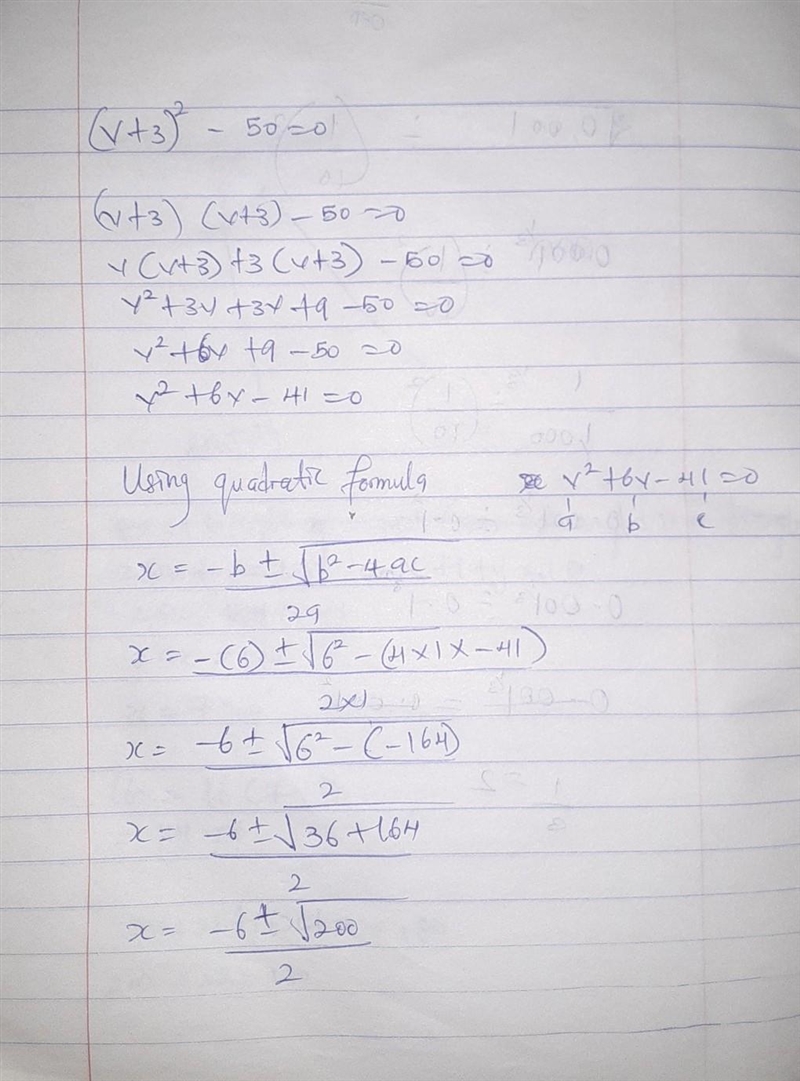 (v+3)² - 50 = 0
(v+3) (v+3) - 50 = 0
v (v+3) + 3 (v+3) - 50 = 0
v² + 3v + 3v + 9 - 50 = 0
v² + 6v + 9 - 50 = 0
v² + 6v - 41 = 0
Using quadratic formula v² + 6v - 41 = 0
a b c
x = -b ± √b² - 4ac
2a
x = -(6) ± √6² - (4 x 1 x - 41)
2x1
x = -6 ± √6² - (-164)
2
x = -6 ± √36 + 164
2
x = -6 ± √200
2